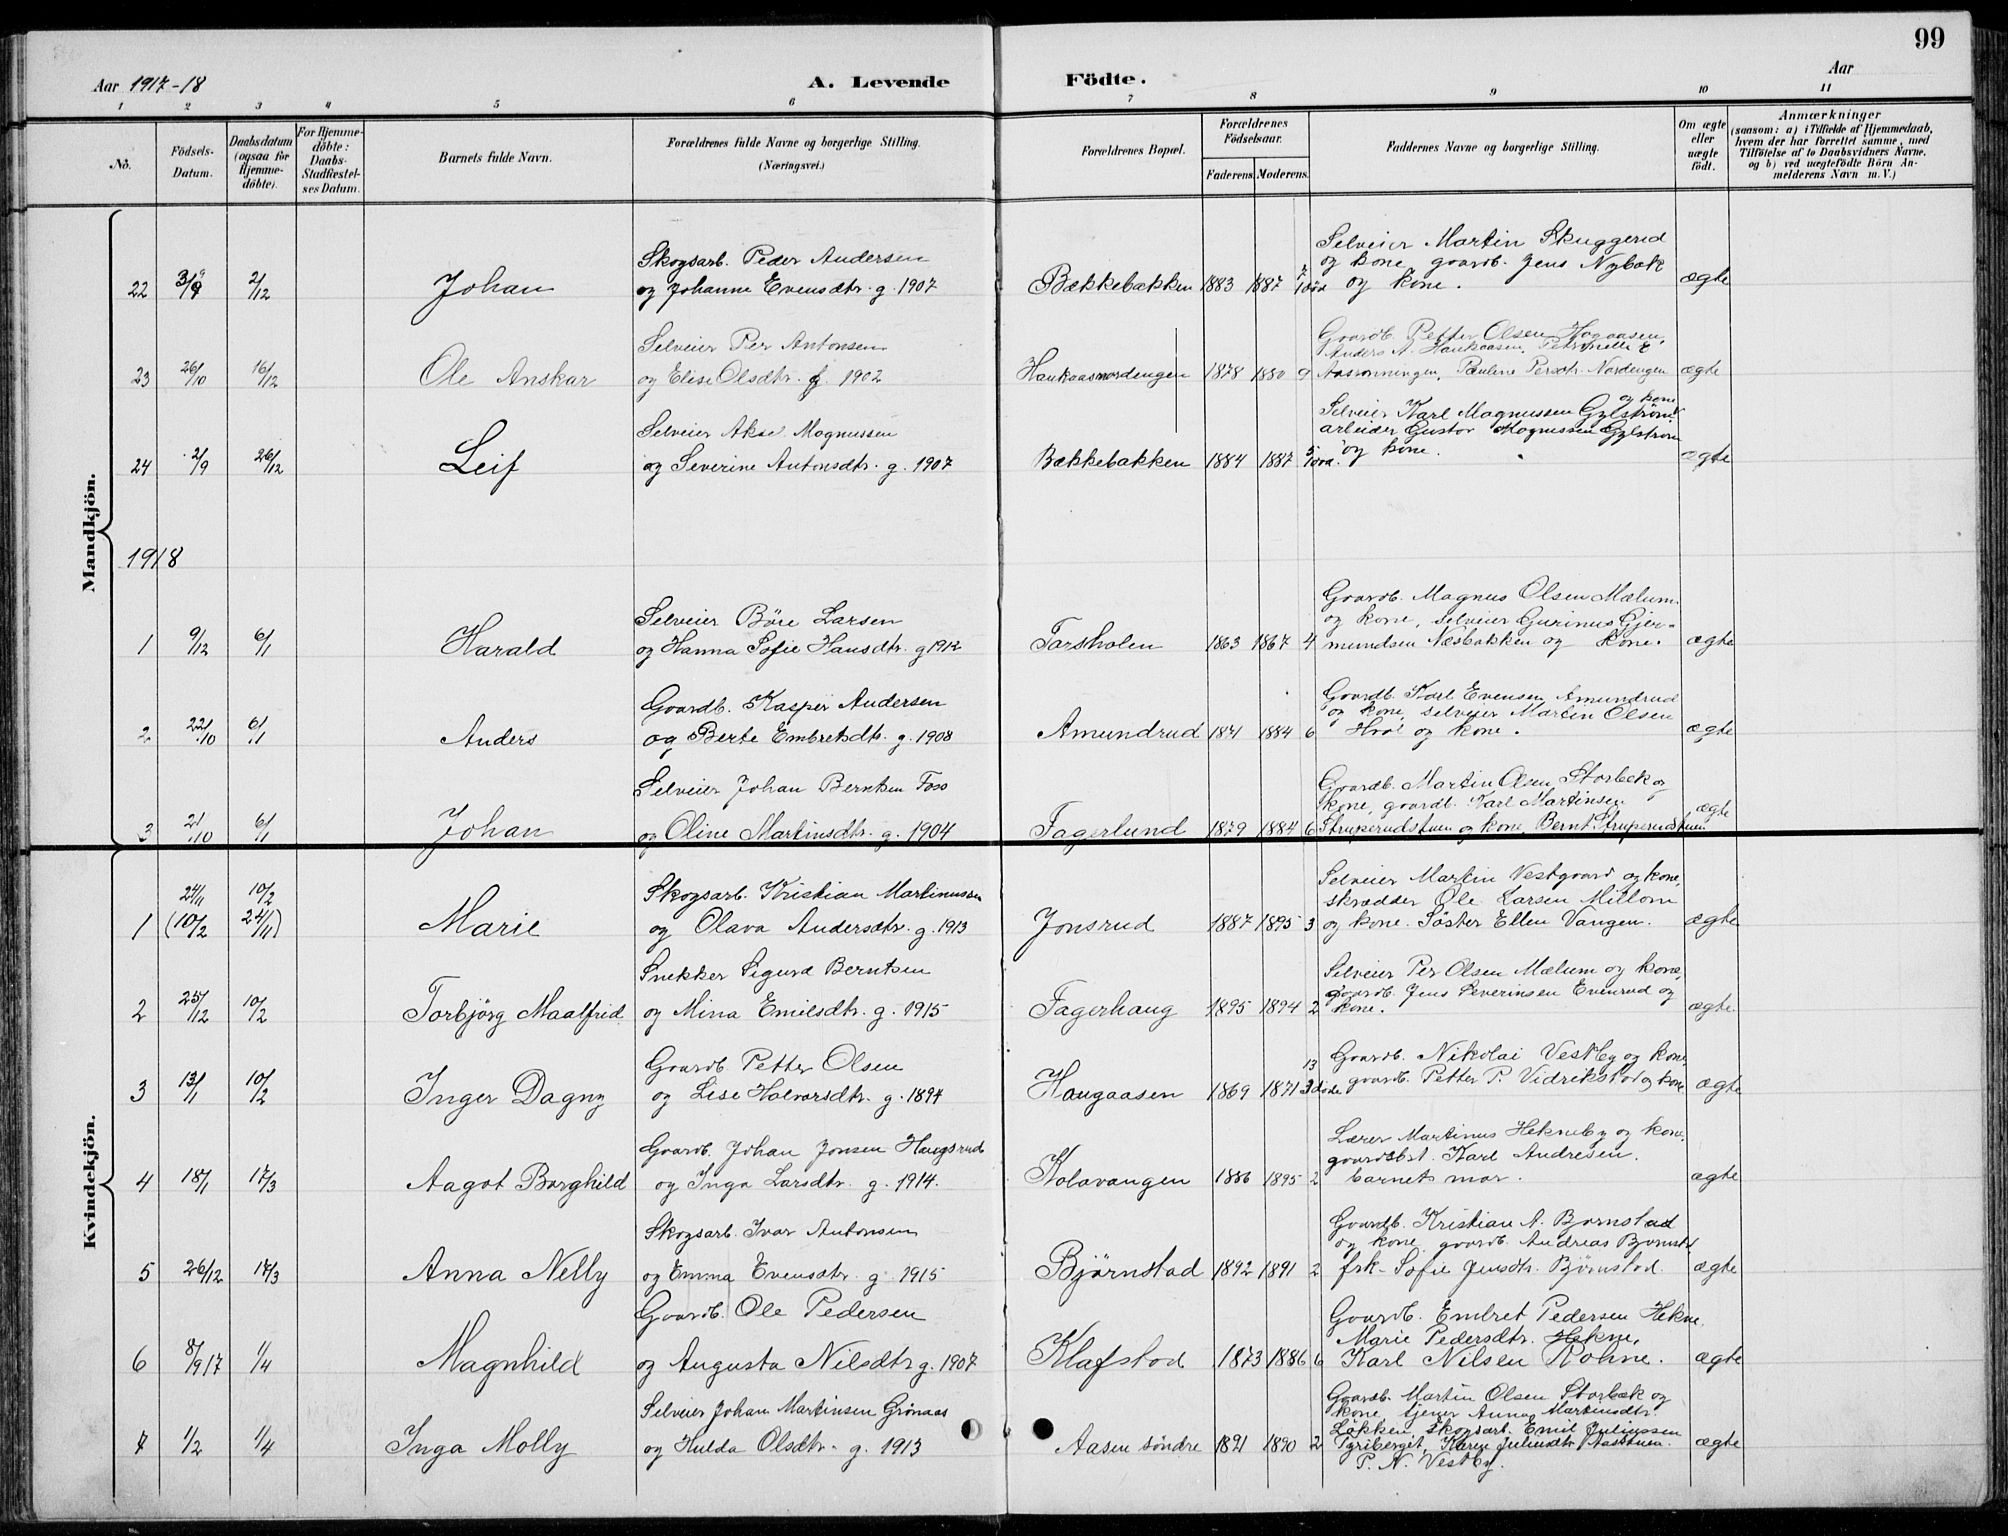 99
Aar 1917-18
A. Levende Födte.
Aar
1 2 3 4 5 6 7 8 9 10 11
No.
Födsels-Datum.
Daabsdatum (ogsaa for Hjemme-döbte).
For Hjemme-döbte: Daabs-Stadfæstel-ses Datum.
Barnets fulde Navn.
Forældrenes fulde Navne og borgerlige Stilling.
(Næringsvei.)
Forældrenes Bopæl.
Forældrenes Födselsaar.
Faderens. Moderens.
Faddernes Navne og borgerlige Stilling.
Om ægte eller uægte födt.
Anmærkninger
(saasom: a) i Tilfælde af Hjemmedaab,
hvem der har forrettet samme, med
Tilföielse af to Daabsvidners Navne,
og b) ved uægtefödte Börn An-
melderens Navn m. V.)
Mandkjön.
Skogsarb. Peder Andersen
22 2/12 Johan og Johanne Evensdtr. g. 1907
Bækkebakken 1883 1887 7 1 död
Selveier Martin Skuggerud
og kone, gaardb. Jens Nybæk
og kone. ægte
Selveier Per Antonsen
23 26/10 16/12 Ole Anskar og Elise Olsdtr. g. 1902
Haukaasnordengen 1878 1880 9
Gaardb. Petter Olsen Hogaasen,
Anders A. Haukaasen, Petronelle E
Aasrönningen, Pauline Persdtr. Nordengen ægte
Selveier Akse Magnussen
24 2/9 26/12 Leif og Severine Antonsdtr. g. 1907
Bækkebakken 1884 1887 5 1 död.
og kone
Selveier Karl Magnussen Gylström
arbeider Gustav Magnussen Gylström
og kone. ægte
1918
Selveier Böre Larsen
1 9/12 6/1 Harald og Hanna Sofie Hansdtr. g 1912
Torsholen 1863 1867 4
Gaardb. Magnus Olsen Mælum
og kone, selveier Gurinus Gjer-
mundsen Næsbakken og kone. ægte
Gaardb. Kasper Andersen
2 22/10 6/1 Anders og Berte Embretsdtr. g. 1908
Amundrud 1871 1884 6
Gaardb. Karl Evensen Amundrud
og kone, selveier Martin Olsen
Hval og kone. ægte
Selveier Johan Berntsen Foss
3 2/10 6/1 Johan og Oline Martinsdtr. g. 1904
Fagerlund 1879 1884 6
Gaardb. Martin Olsen Storbæk og
kone, gaardb. Karl Martinsen
Struperudstuen og kone, Bernt Struperudstuen ægte
Kvindekjön.
24/11 10/2 Skogsarb. Kristian Martinussen
1 (10/2 24/11) Marie og Olava Andersdtr. g. 1913
Jonsrud 1887 1895 3
Selveier Martin Vestgaard og kone,
skrædder Ole Larsen Millom
og kone. Söster Ellen Vangen. ægte
Snekker Sigurd Berntsen
2 25/12 10/2 Torbjörg Maalfrid og Mina Emilsdtr. g. 1915
Fagerhaug 1895 1894 2
Selveier Per Olsen Mælum og kone,
gaardb. Jens Severinsen Evenrud og
kone. ægte.
Gaardb. Petter Olsen
3 13/1 10/2 Inger Dagny og Lise Halvorsdtr. g. 1894
Haugaasen 1869 1871 13 3 döde
Gaardb. Nikolai Vestby og kone,
gaardb. Petter P. Vidrikstad og kone ægte
Gaardb. Johan Jonsen Haugsrud
4 18/1 17/3 Aagot Borghild og Inga Larsdtr. g. 1914.
Kolavangen 1886 1895 2
Lærer Martinus Hekneby og kone,
gaardbst. Karl Andresen.
barnets mor. ægte
Skogsarb. Ivar Antonsen
5 26/12 17/3 Anna Nelly og Emma Evensdtr. g. 1915
Björnstad 1892 1891 2
Gaardb. Kristian A. Bjørnstad
og kone, gaardb. Andreas Bjørnst
frk. Sofie Jensdtr. Björnstad. ægte
Gaardb. Ole Pedersen
6 8/9 17 1/4 Magnhild og Augusta Nilsdtr g. 1907
Klafstad 1873 1886 6
Gaardb. Embret Pedersen Hekne,
Marie Pedersdtr. Hekne,
Karl Nilsen Rohne. ægte
Selveier Johan Martinsen Grönaas
7 1/2 1/4 Inga Molly og Hulda Olsdtr. g. 1913
Aasen söndre 1891 1890 2
Gaardb. Martin Olsen Storbæk og
kone, tjener Anna Martinsdtr.
Lökken, skogsarb. Emil Juliussen
Tyriberget, Karen Juliusdtr Aasstuen.
P. N. Vestby. ægte